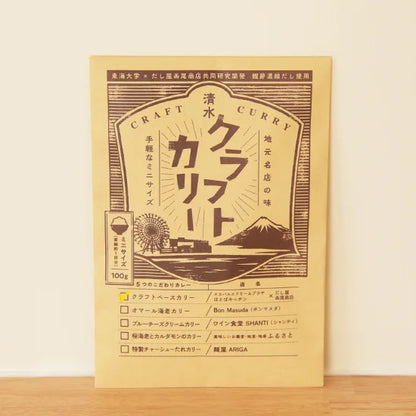 東海大学 × だし屋西尾商店共同研究開発 鰹節濃縮だし使用
CRAFT CURRY
清水
クラフトカリー
地元名店の味
手軽なミニサイズ
ミニサイズ
100g
5つのこだわりカレー 店名
クラフトベースカリー
オマール海老カリー Bon Masuda(ボンマスダ)
ブルーチーズクリームカリー ワイン食堂 SHANTI(シャンティ)
桜海老とカルダモンのカリー ふるさと
特製チャーシューだれカリー 麺屋 ARIGA